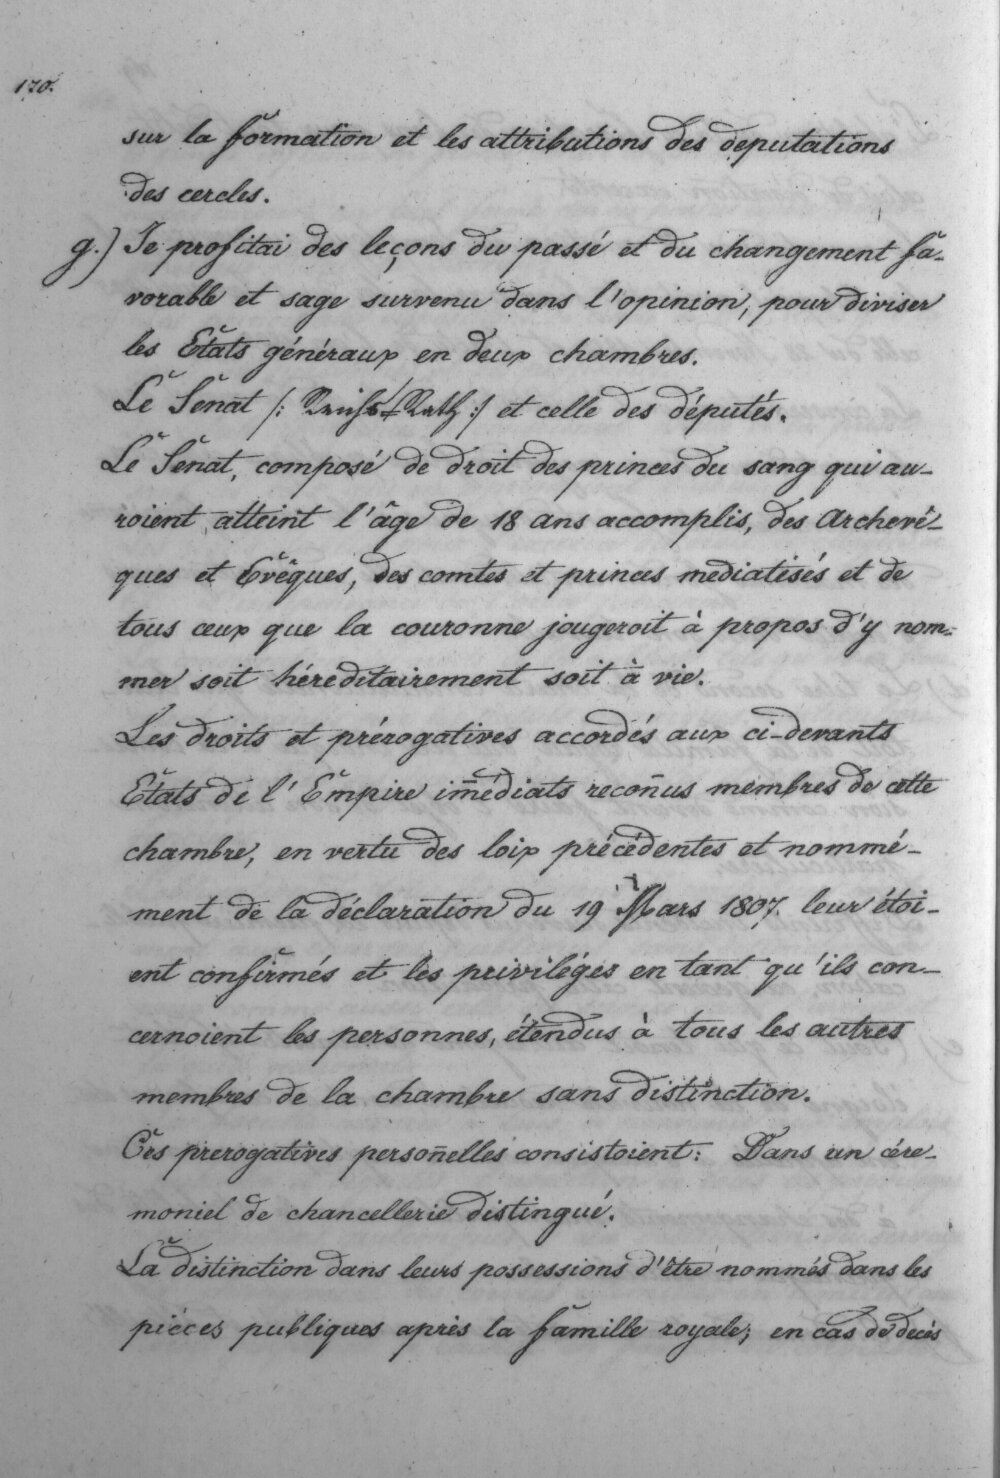 170.
sur la formation et les attributions des deputations
des cercles.
g.) Je profitai des leçons du passé et du changement fa-
vorable et sage survenu dans l'opinion, pour diviser
les Etats généraux en deux chambres.
Le Senat /: Reichs-Rath :/ et celle des députés.
Le Senat, composé de droit des princes du sang qui au-
roient atteint l'âge de 18 ans accomplis, des Archevê-
ques et Evêques, des comtes et princes mediatisés et de
tous ceux que la couronne jougeroit à propos d'y nom-
mer soit héréditairement soit à vie.
Les droits et prérogatives accordés aux ci-devants
Etats de l'Empire im̅édiats recon̅us membres de cette
chambre, en vertu des loix précédentes et nommé-
ment de la déclaration du 19 Mars 1807. leur étoi-
ent confirmés et les priviléges en tant qu'ils con-
cernoient les personnes, étendus à tous les autres
membres de la chambre sans distinction.
Ces prerogatives person̅elles consistoient: Dans un cére-
moniel de chancellerie distingué.
La distinction dans leurs possessions d'être nommés dans les
piéces publiques après la famille royale; en cas de decés